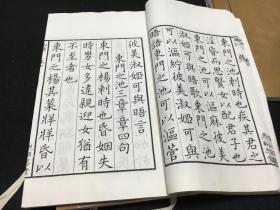 東門之池刺時也疾其君之
淫昏而思賢女以配君子也
東門之池可以漚麻彼
美淑姬可與晤歌東門之池
可以漚紵彼美淑姬可與
晤語東門之池可以漚菅
彼美淑姬可與晤言
東門之池三章章四句
東門之楊刺時也昏姻失
時男女多違親迎女猶有
不至者也
東門之楊其葉牂牂昏以